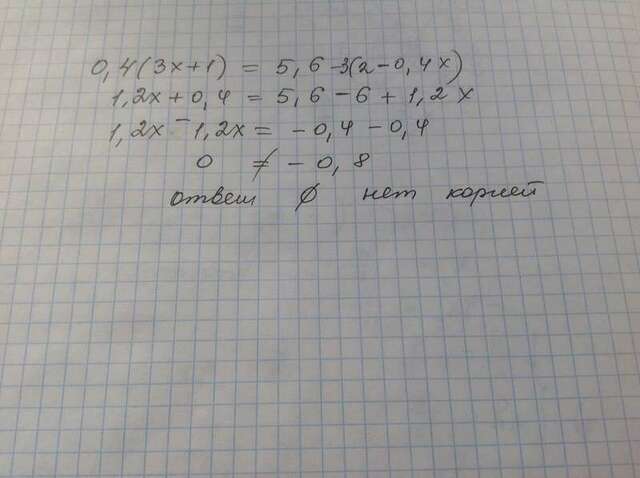 0,4(3x+1) = 5,6-3(2-0,4x)
1,2x+0,4 = 5,6-6+1,2x
1,2x-1,2x = -0,4-0,4
0 ≠ -0,8
ответ ∅ нет корней